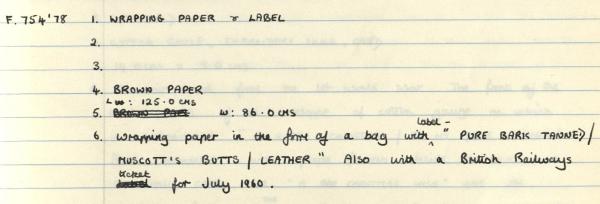 F. 754'78 1. WRAPPING PAPER & LABEL
2.
3.
4. BROWN PAPER
L: 125.0 CMS
5. BROWN PAPE W: 86.0 CMS
label -
6. Wrapping paper in the form of a bag with "PURE BARK TANNED/
MUSCOTT'S BUTTS / LEATHER" Also with a British Railways
ticket
Label for July 1960.